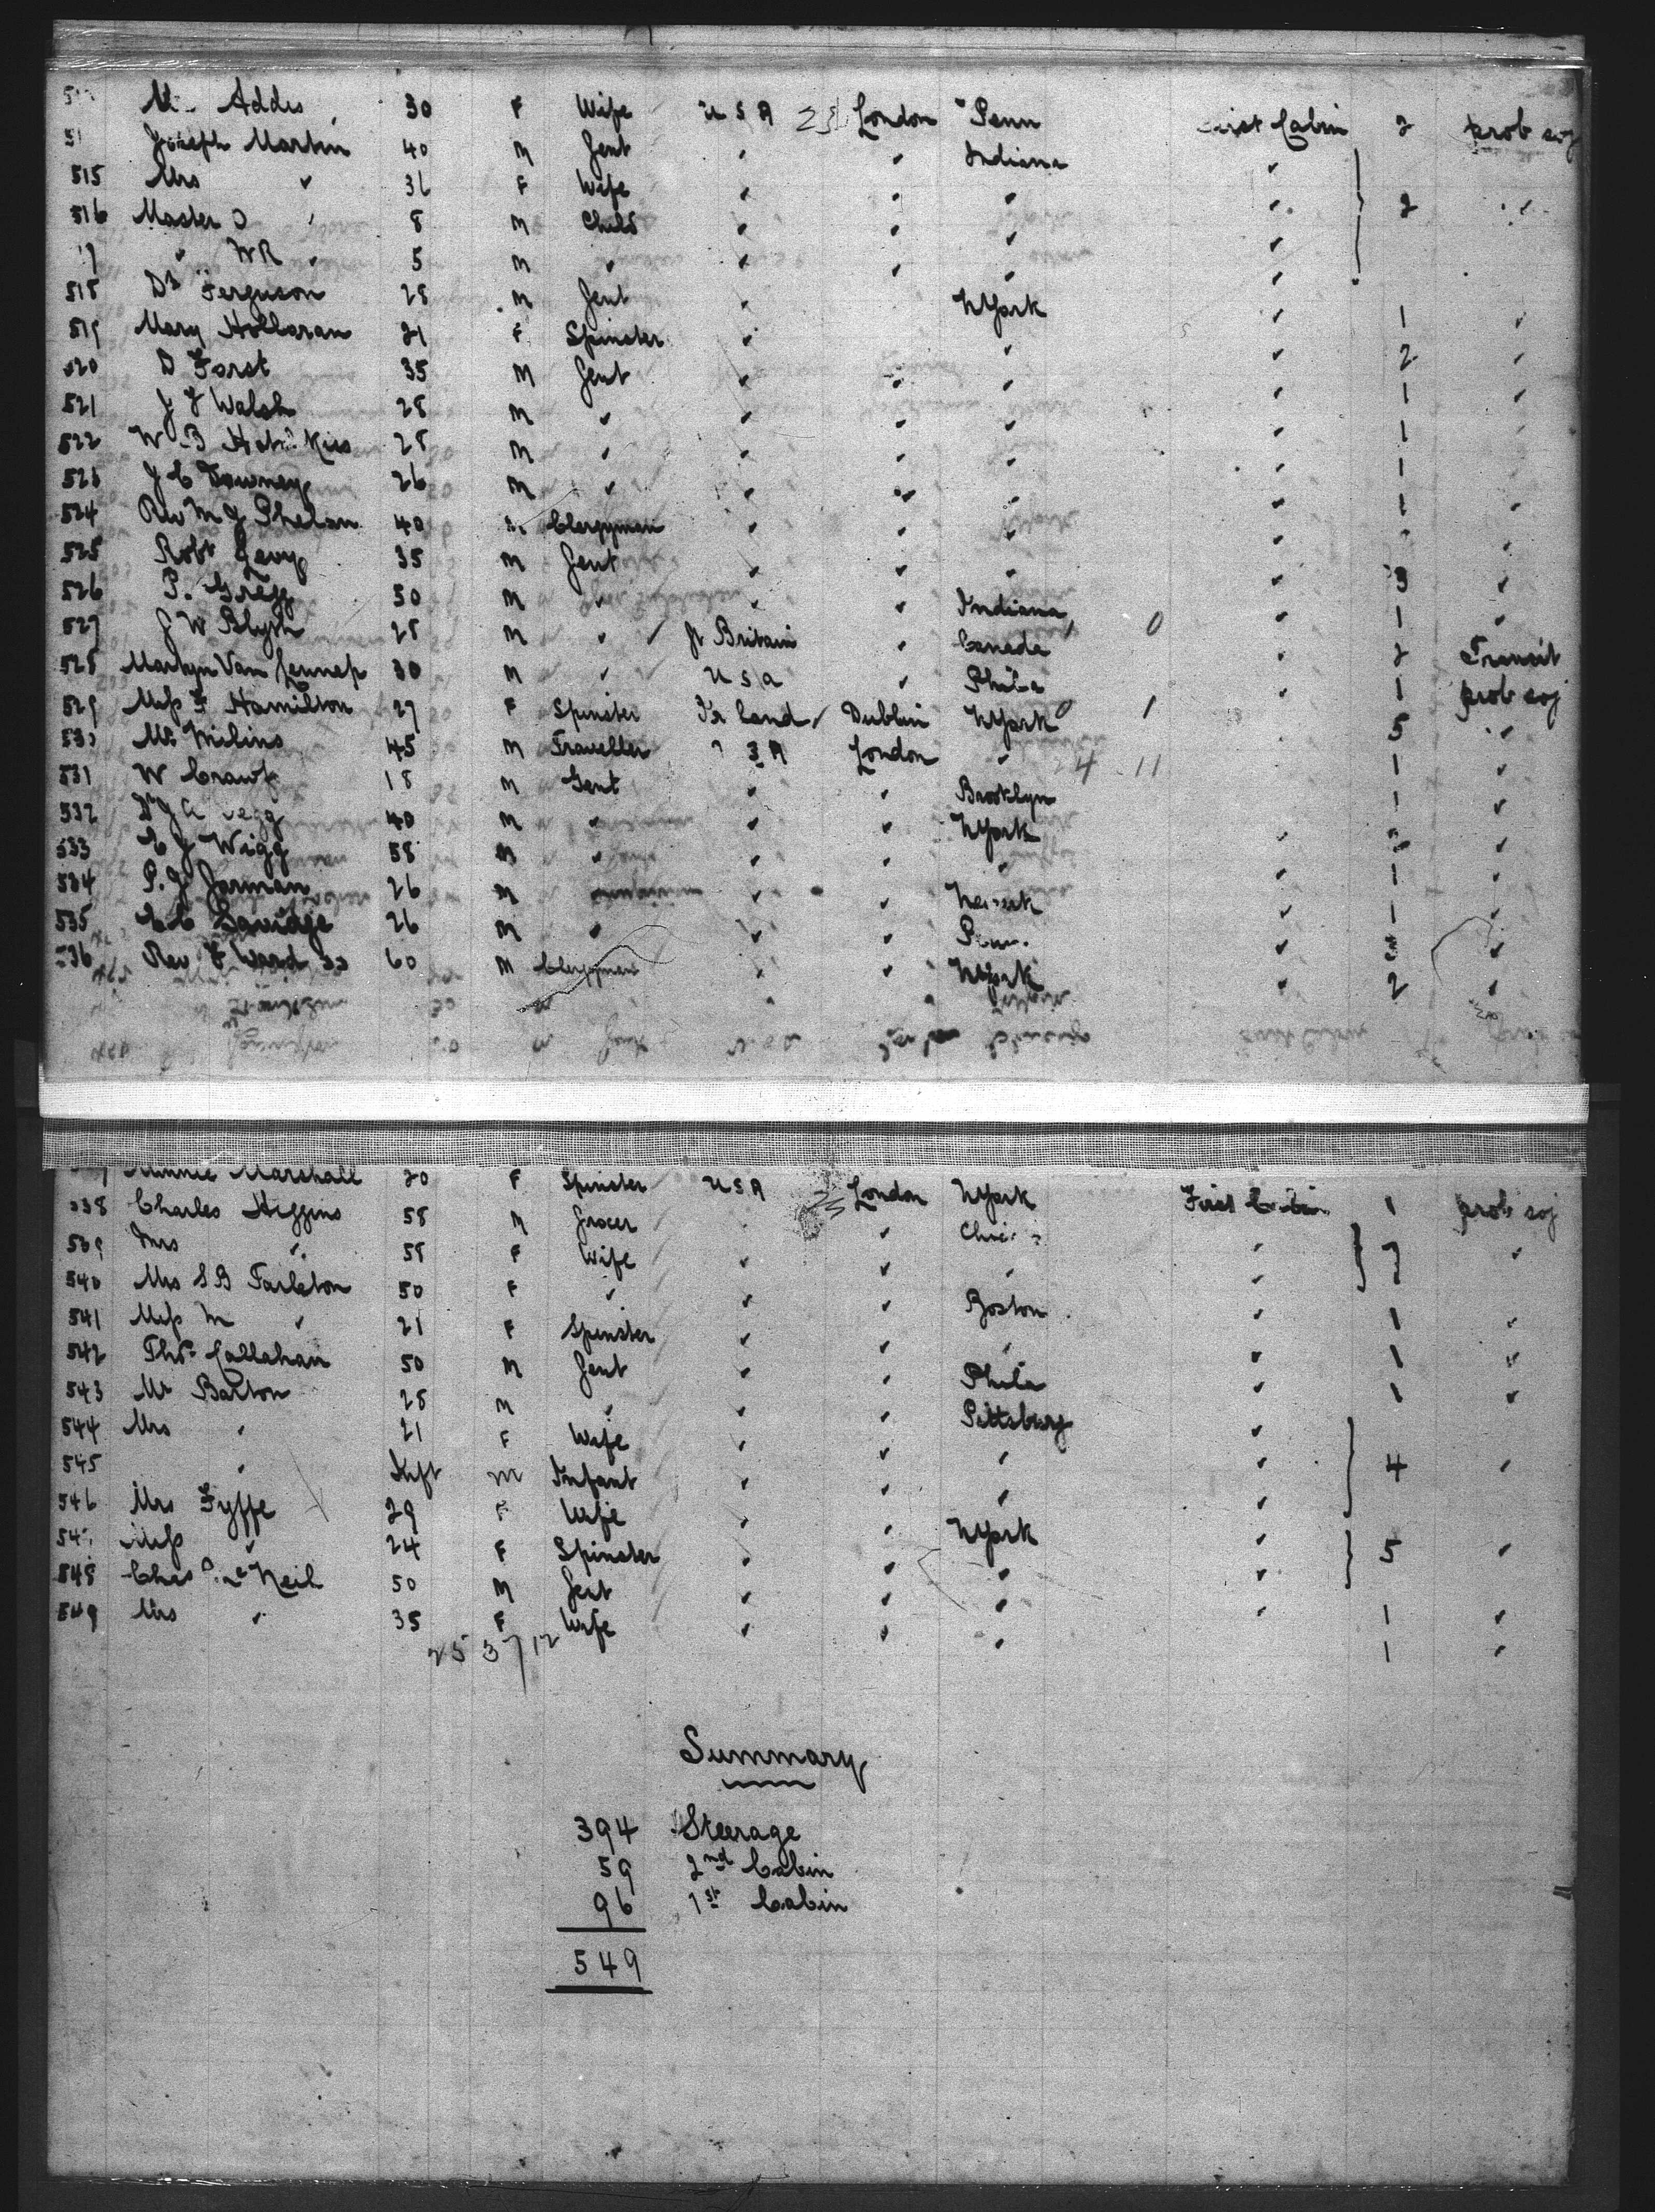 Addis 30 F Wife U S A London Penn First Cabin 2 prob soj
Joseph Martin 40 M Gent " " Indiana "
515 Mrs " 36 F Wife " " " " 2 "
516 Master " 8 M Child " " " "
" WR " 5 M " " " " "
518 Dr Ferguson 28 M Gent " NYork " 1 "
519 Mary Holloran 21 F Spinster " " " 2 "
520 D Forst 35 M Gent " " " " 1 "
521 J F Walsh 28 M " " " " " 1
522 W B 28 M " " " " " 1
523 J C Downey 26 M " " " " " 1 "
524 Rev M J Phelan 40 Clergyman " " " "
525 Robt 35 M Gent " " " " 3 "
526 P. Gregg 50 M " " " Indiana " 1 "
527 J W Blyth 28 M " Gt Britain " Canada " 2 Transit
528 Van Lennep 30 M " U S A " Phila " 1 prob soj
529 Miss F Hamilton 27 F Spinster Ireland Dublin NYork 5 "
530 Mr Milins 45 M Traveller S A London " 1 "
531 W Crawf 18 M Gent " " Brooklyn 1 "
532 Dr J A 40 M " " " NYork " "
533 C J Wigg 58 M " " " " " 1 "
534 P. J. Jarman 26 M " " " 1 "
535 C C Savidge 26 M " " " Penn. " "
536 Rev F Ward 60 M Clergyman " " NYork " 2 "
Minnie Marshall 20 F Spinster U S A London NYork First Cabin 1 prob soj
538 Charles Higgins 58 M Grocer " "
539 Mrs " 58 F Wife " " " " 7 "
540 Mrs S B Tarleton 50 F " " " Boston " 1 "
541 Miss M " 21 F Spinster " " " " 1 "
542 Thos Callahan 50 M Gent " " Phila " 1 "
543 Mr Barton 28 M " " " Pittsburg "
544 Mrs " 21 F Wife " " " " 4 "
545 " Inft M Infant " " " "
546 Mrs Fyffe 29 F Wife " " NYork "
547 Miss " 24 F Spinster " " " " 5 "
548 Chas Neil 50 M Gent " " " " 1 "
549 Mrs " 35 F Wife " " " 1 "
25 37 12
Summary
394 Steerage
59 2nd Cabin
96 1st Cabin
549